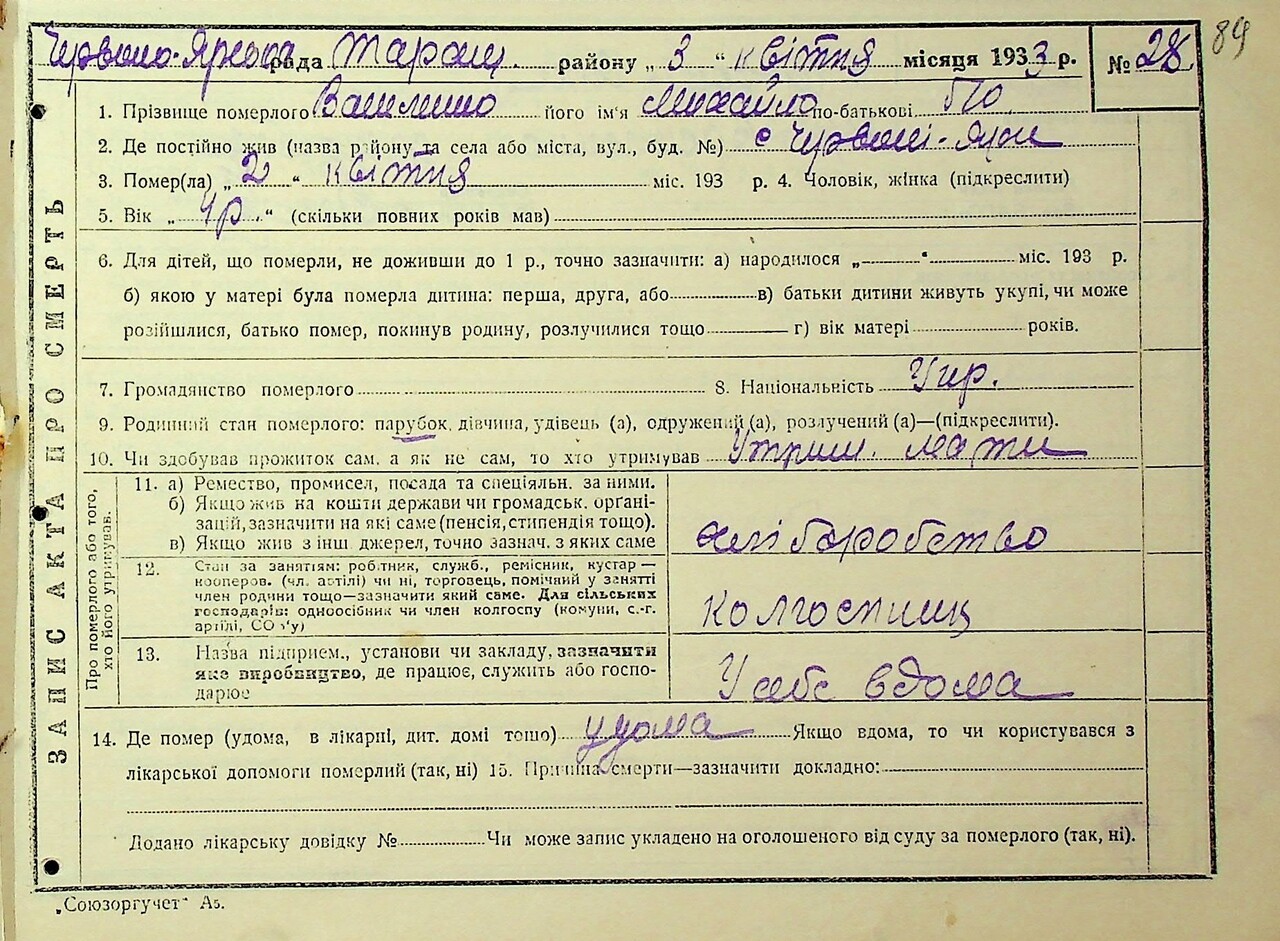 89
Червоно-Ярська рада Таращ. району „ 3 “ квітня місяця 1933 р. № 28
1. Прізвище померлого його ім'я Михайло по-батькові
2. Де постійно жив (назва району та села або міста, вул., буд. №) с Червоні-Яри
3. Помер(ла) „ 2 “ квітня міс. 193 р. 4. Чоловік, жінка (підкреслити)
5. Вік „ 4р. “ (скільки повних років мав)
6. Для дітей, що померли, не доживши до 1 р., точно зазначити: а) народилося „ “ міс. 193 р.
б) якою у матері була померла дитина: перша, друга, або в) батьки дитини живуть укупі, чи може
розійшлися, батько помер, покинув родину, розлучилися тощо г) вік матері років.
7. Громадянство померлого 8. Національність Укр.
9. Родинний стан померлого: парубок, дівчина, удівець (а), одружений(а), розлучений (а)—(підкреслити).
10. Чи здобував прожиток сам, а як не сам, то хто утримував Утрим. мати
ЗАПИС АКТА ПРО СМЕРТЬ
Про померлого або того, хто його утримував.
11. а) Ремество, промисел, посада та спеціальн. за ними.
б) Якщо жив на кошти держави чи громадськ. орґані-
зацій, зазначити на які саме (пенсія, стипендія тощо).
в) Якщо жив з інш. джерел, точно зазнач. з яких саме
хліборобство
12. Стан за занятям: робітник, служб., ремісник, кустар —
кооперов. (чл. артілі) чи ні, торговець, помічний у занятті
член родини тощо—зазначити який саме. Для сільських
господарів: одноосібник чи член колгоспу (комуни, с.-г.
артілі, СОЗ'у)
колгоспниц
13. Назва підприєм., установи чи закладу, зазначити
яке виробництво, де працює, служить або госпо-
дарює
У себе вдома
14. Де помер (удома, в лікарні, дит. домі тощо) удома Якщо вдома, то чи користувався з
лікарської допомоги померлий (так, ні) 15. Причина смерти—зазначити докладно:
Додано лікарську довідку № Чи може запис укладено на оголошеного від суду за померлого (так, ні).
„Союзоргучет“ А5.